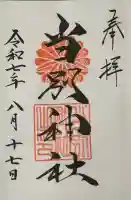 奉拝
当別神社
令和七年八月十七日